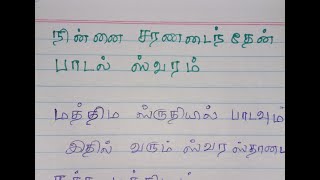 நின்னை சரணடைந்தேன்
பாடல் ஸ்வரம்
மத்திம ஸ்ருதியில் பாடவும்
இதில் வரும் ஸ்வர